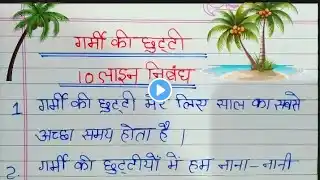 गर्मी की छुट्टी
10 लाइन निबंध
1 गर्मी की छुट्टी मेरे लिए साल का सबसे
अच्छा समय होता है ।
2. गर्मी की छुट्टीयों में हम नाना-नानी